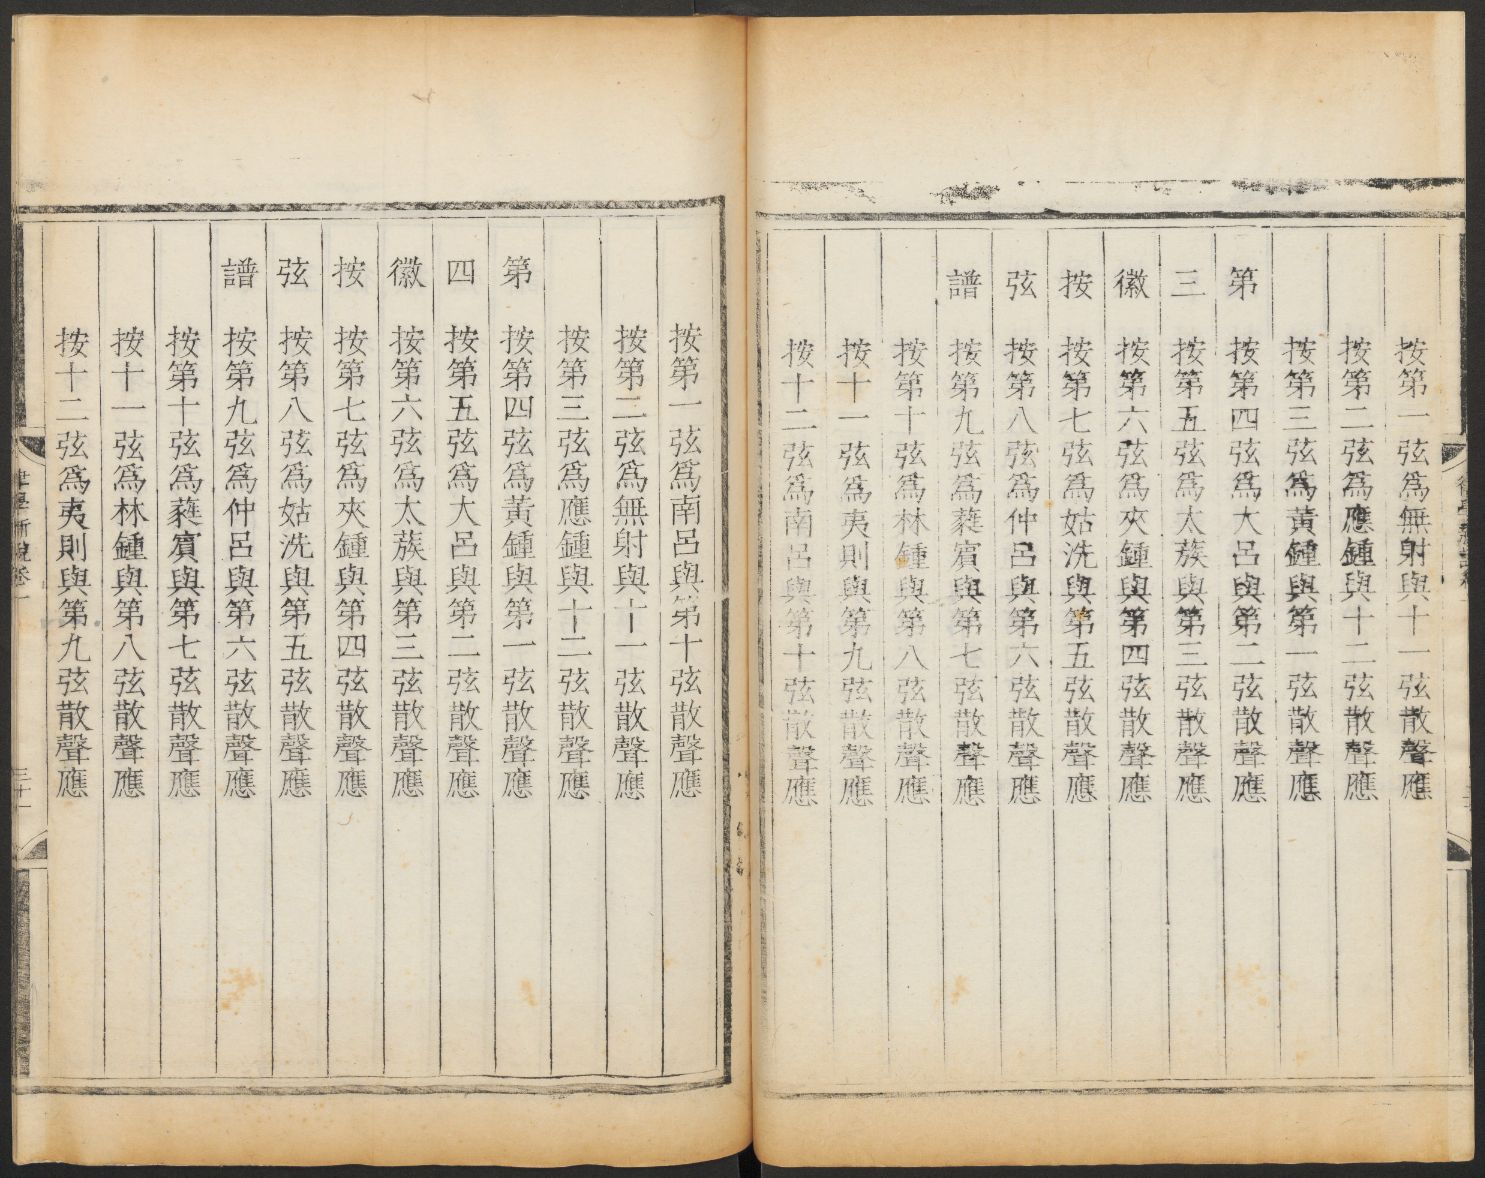 第三徽按弦譜
按第一弦爲無射與十一弦散聲應
按第二弦爲應鍾與十二弦散聲應
按第三弦爲黃鍾與第一弦散聲應
按第四弦爲大呂與第二弦散聲應
按第五弦爲太蔟與第三弦散聲應
按第六弦爲夾鍾與第四弦散聲應
按第七弦爲姑洗與第五弦散聲應
按第八弦爲仲呂與第六弦散聲應
按第九弦爲蕤賓與第七弦散聲應
按第十弦爲林鍾與第八弦散聲應
按十一弦爲夷則與第九弦散聲應
按十二弦爲南呂與第十弦散聲應
第四徽按弦譜
按第一弦爲南呂與第十弦散聲應
按第二弦爲無射與十一弦散聲應
按第三弦爲應鍾與十二弦散聲應
按第四弦爲黃鍾與第一弦散聲應
按第五弦爲大呂與第二弦散聲應
按第六弦爲太蔟與第三弦散聲應
按第七弦爲夾鍾與第四弦散聲應
按第八弦爲姑洗與第五弦散聲應
按第九弦爲仲呂與第六弦散聲應
按第十弦爲蕤賓與第七弦散聲應
按十一弦爲林鍾與第八弦散聲應
按十二弦爲夷則與第九弦散聲應
律學新說卷一